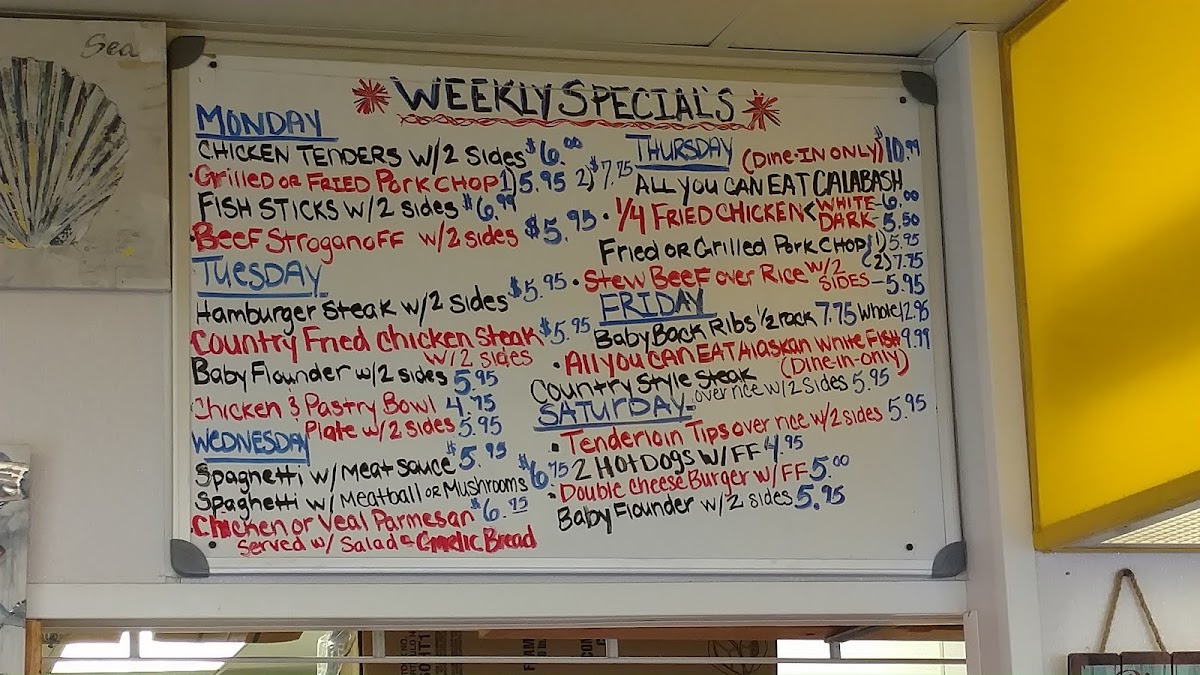 Sea
WEEKLY SPECIALS
MONDAY
CHICKEN TENDERS W/2 Sides $6.00
Grilled OR FRIED PORK CHOP 1) 5.95 2) $7.75
FISH STICKS W/2 sides $6.99
BEEF STROGANOFF W/2 sides $5.95
TUESDAY
Hamburger Steak w/2 sides $5.95
Country Fried Chicken Steak $5.95
W/2 sides
Baby Flounder w/2 sides 5.95
Chicken & Pastry Bowl 4.75
Plate w/2 sides 5.95
WEDNESDAY
Spaghetti w/ Meat sauce $5.95
Spaghetti w/ Meatball OR Mushrooms $6.75
Chicken or Veal Parmesan $6.95
Served w/ Salad & Garlic Bread
THURSDAY (Dine-IN ONLY) $10.99
ALL YOU CAN EAT CALABASH
1/4 FRIED CHICKEN < WHITE-6.00
DARK-5.50
Fried OR Grilled Pork CHOP (1) 5.95
(2) 7.75
Stew BEEF over Rice W/2 SIDES-5.95
FRIDAY
Baby Back Ribs 1/2 rack 7.75 Whole 12.95
All you CAN EAT Alaskan White FISH 9.99
(Dine-in-only)
Country Style Steak over rice w/2 Sides 5.95
SATURDAY
Tenderloin Tips over rice w/2 sides 5.95
2 HOT DOGS W/FF 4.95
Double Cheese Burger w/FF 5.00
Baby Flounder w/2 sides 5.95